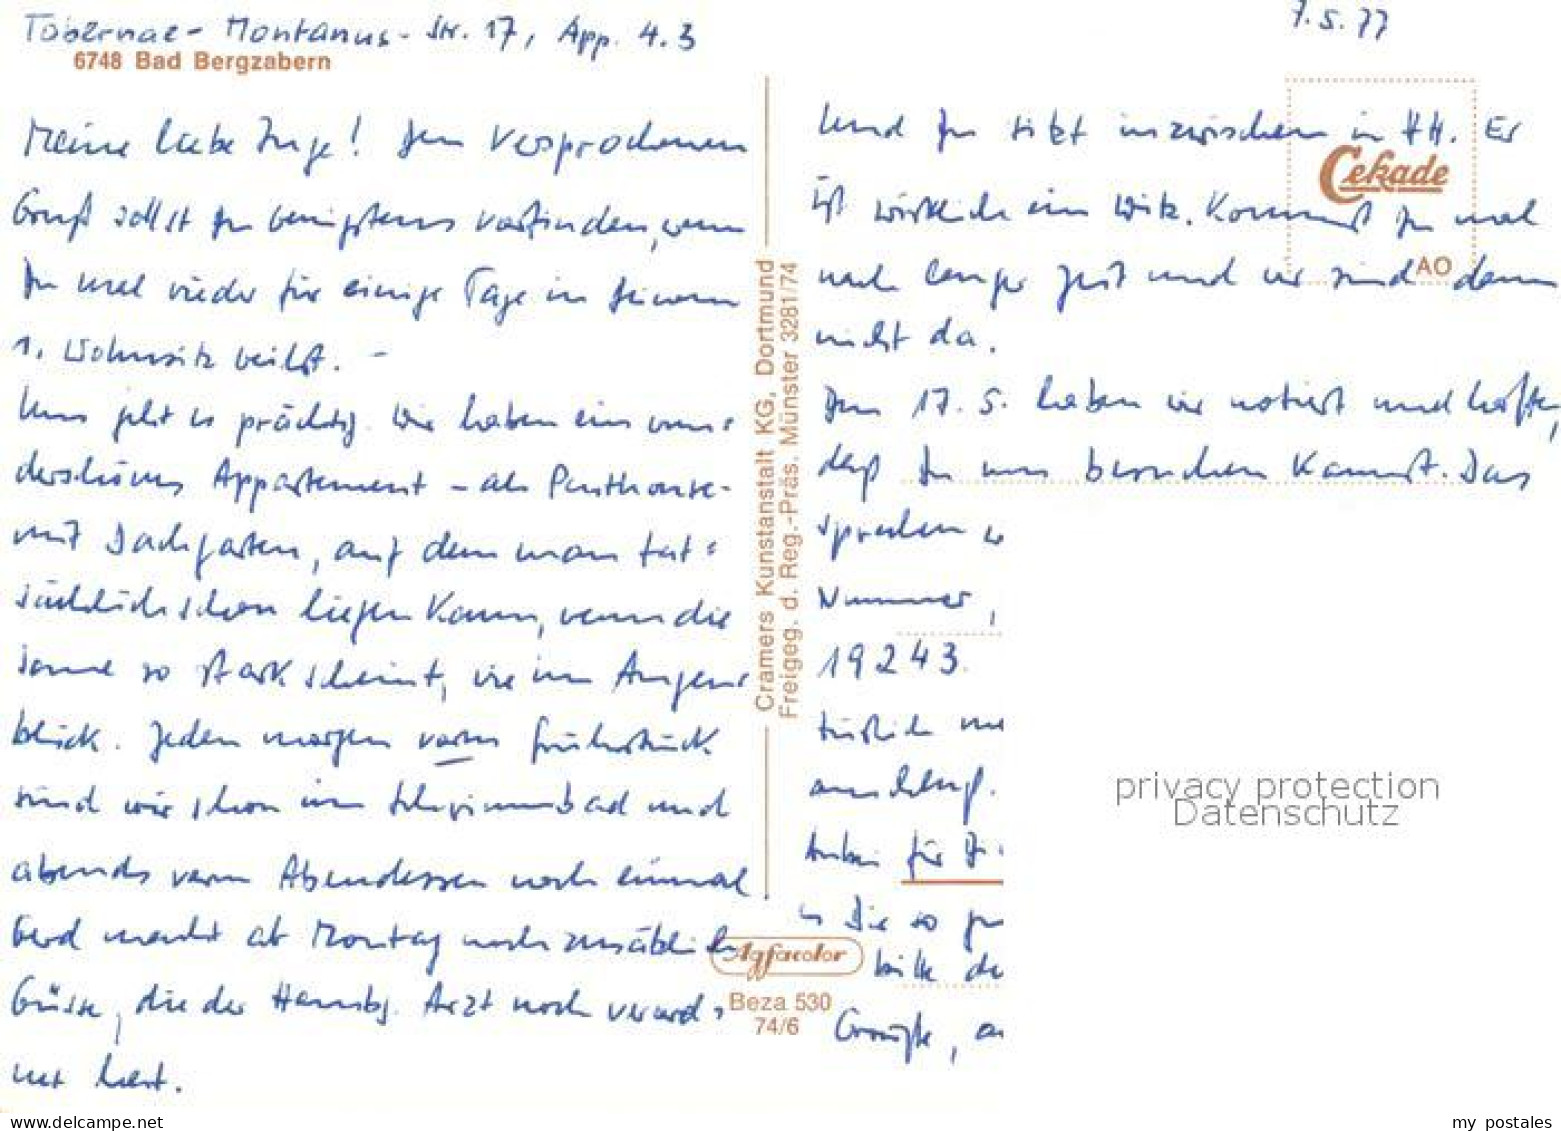 Tabernae-Montanus-Str. 17, App. 4.3
7.5.77
6748 Bad Bergzabern
Meine liebe Inge! Den versprochenen
Gruß sollst Du wenigstens vorfinden, wenn
Du mal wieder für einige Tage in Deinem
1. Wohnsitz weilst. –
Uns geht es prächtig. Wir haben ein wun-
derschönes Appartement – als Penthouse-
mit Dachgarten, auf dem man tat-
sächlich schon liegen kann, wenn die
Sonne so stark scheint, wie im Augen-
blick. Jeden morgen vorm Frühstück
sind wir schon im Schwimmbad und
abends vorm Abendessen noch einmal.
Gerd macht ab Montag noch zusätzlich
Güsse, die der Hambg. Arzt noch verord-
net hat.
Und Du sitzt inzwischen in HH. Er
ist wirklich ein Witz. Kommst Du mal
nach langer Zeit und wir sind dann
nicht da.
Den 17.5. haben wir notiert und hoffen,
daß Du uns besuchen kannst. Das
sprechen
Nummer,
19243.
türlich
für
Die so
bitte
Grüße,
Cekade
AO
Cramers Kunstanstalt KG, Dortmund
Freigeg. d. Reg.-Präs. Münster 3281/74
Agfacolor
Beza 530
74/6
privacy protection
Datenschutz
www.delcampe.net
my_postales